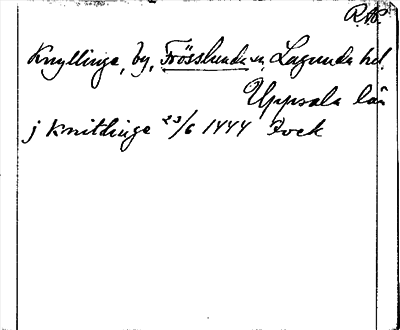 RA.
Knyllinge, by, Frösslunda sn, Lagunda hd.
Uppsala län
j Knitlinge 23/6 1444 Fock